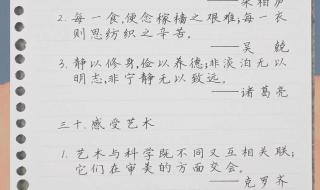 2. 每一食,便念稼穑之艰难;每一衣
则思纺织之辛苦。
——吴 兢
3. 静以修身,俭以养德;非淡泊无以
明志,非宁静无以致远。
——诸葛亮
三十、感受艺术
1. 艺术与科学既不同又互相关联;
它们在审美的方面交会。
——克罗齐